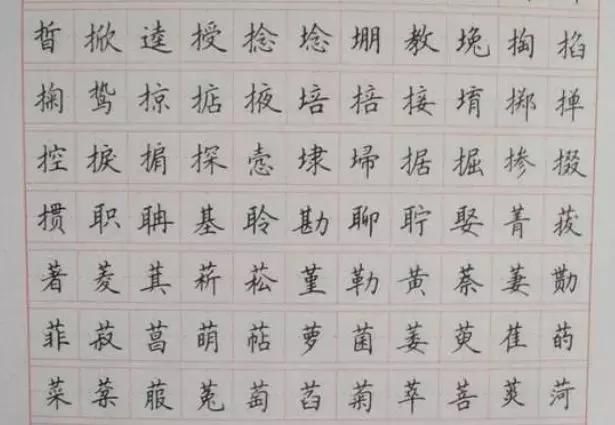 晢掀逵授捻埝堋教堍掏掐
掬鸷掠掂掖培掊接堉掷掸
控捩掮探悫埭埽据掘掺掇
掼职聃基聆勘聊聍娶菁菝
著菱萁菥菘堇勒黄萘萋勚
菲菽菖萌萜萝菌萎萸萑菂
菜棻菔菟萄萏菊萃菩菼菏